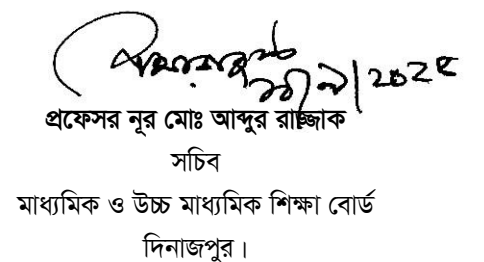 প্রফেসর নূর মোঃ আব্দুর রাজ্জাক
সচিব
মাধ্যমিক ও উচ্চ মাধ্যমিক শিক্ষা বোর্ড
দিনাজপুর।